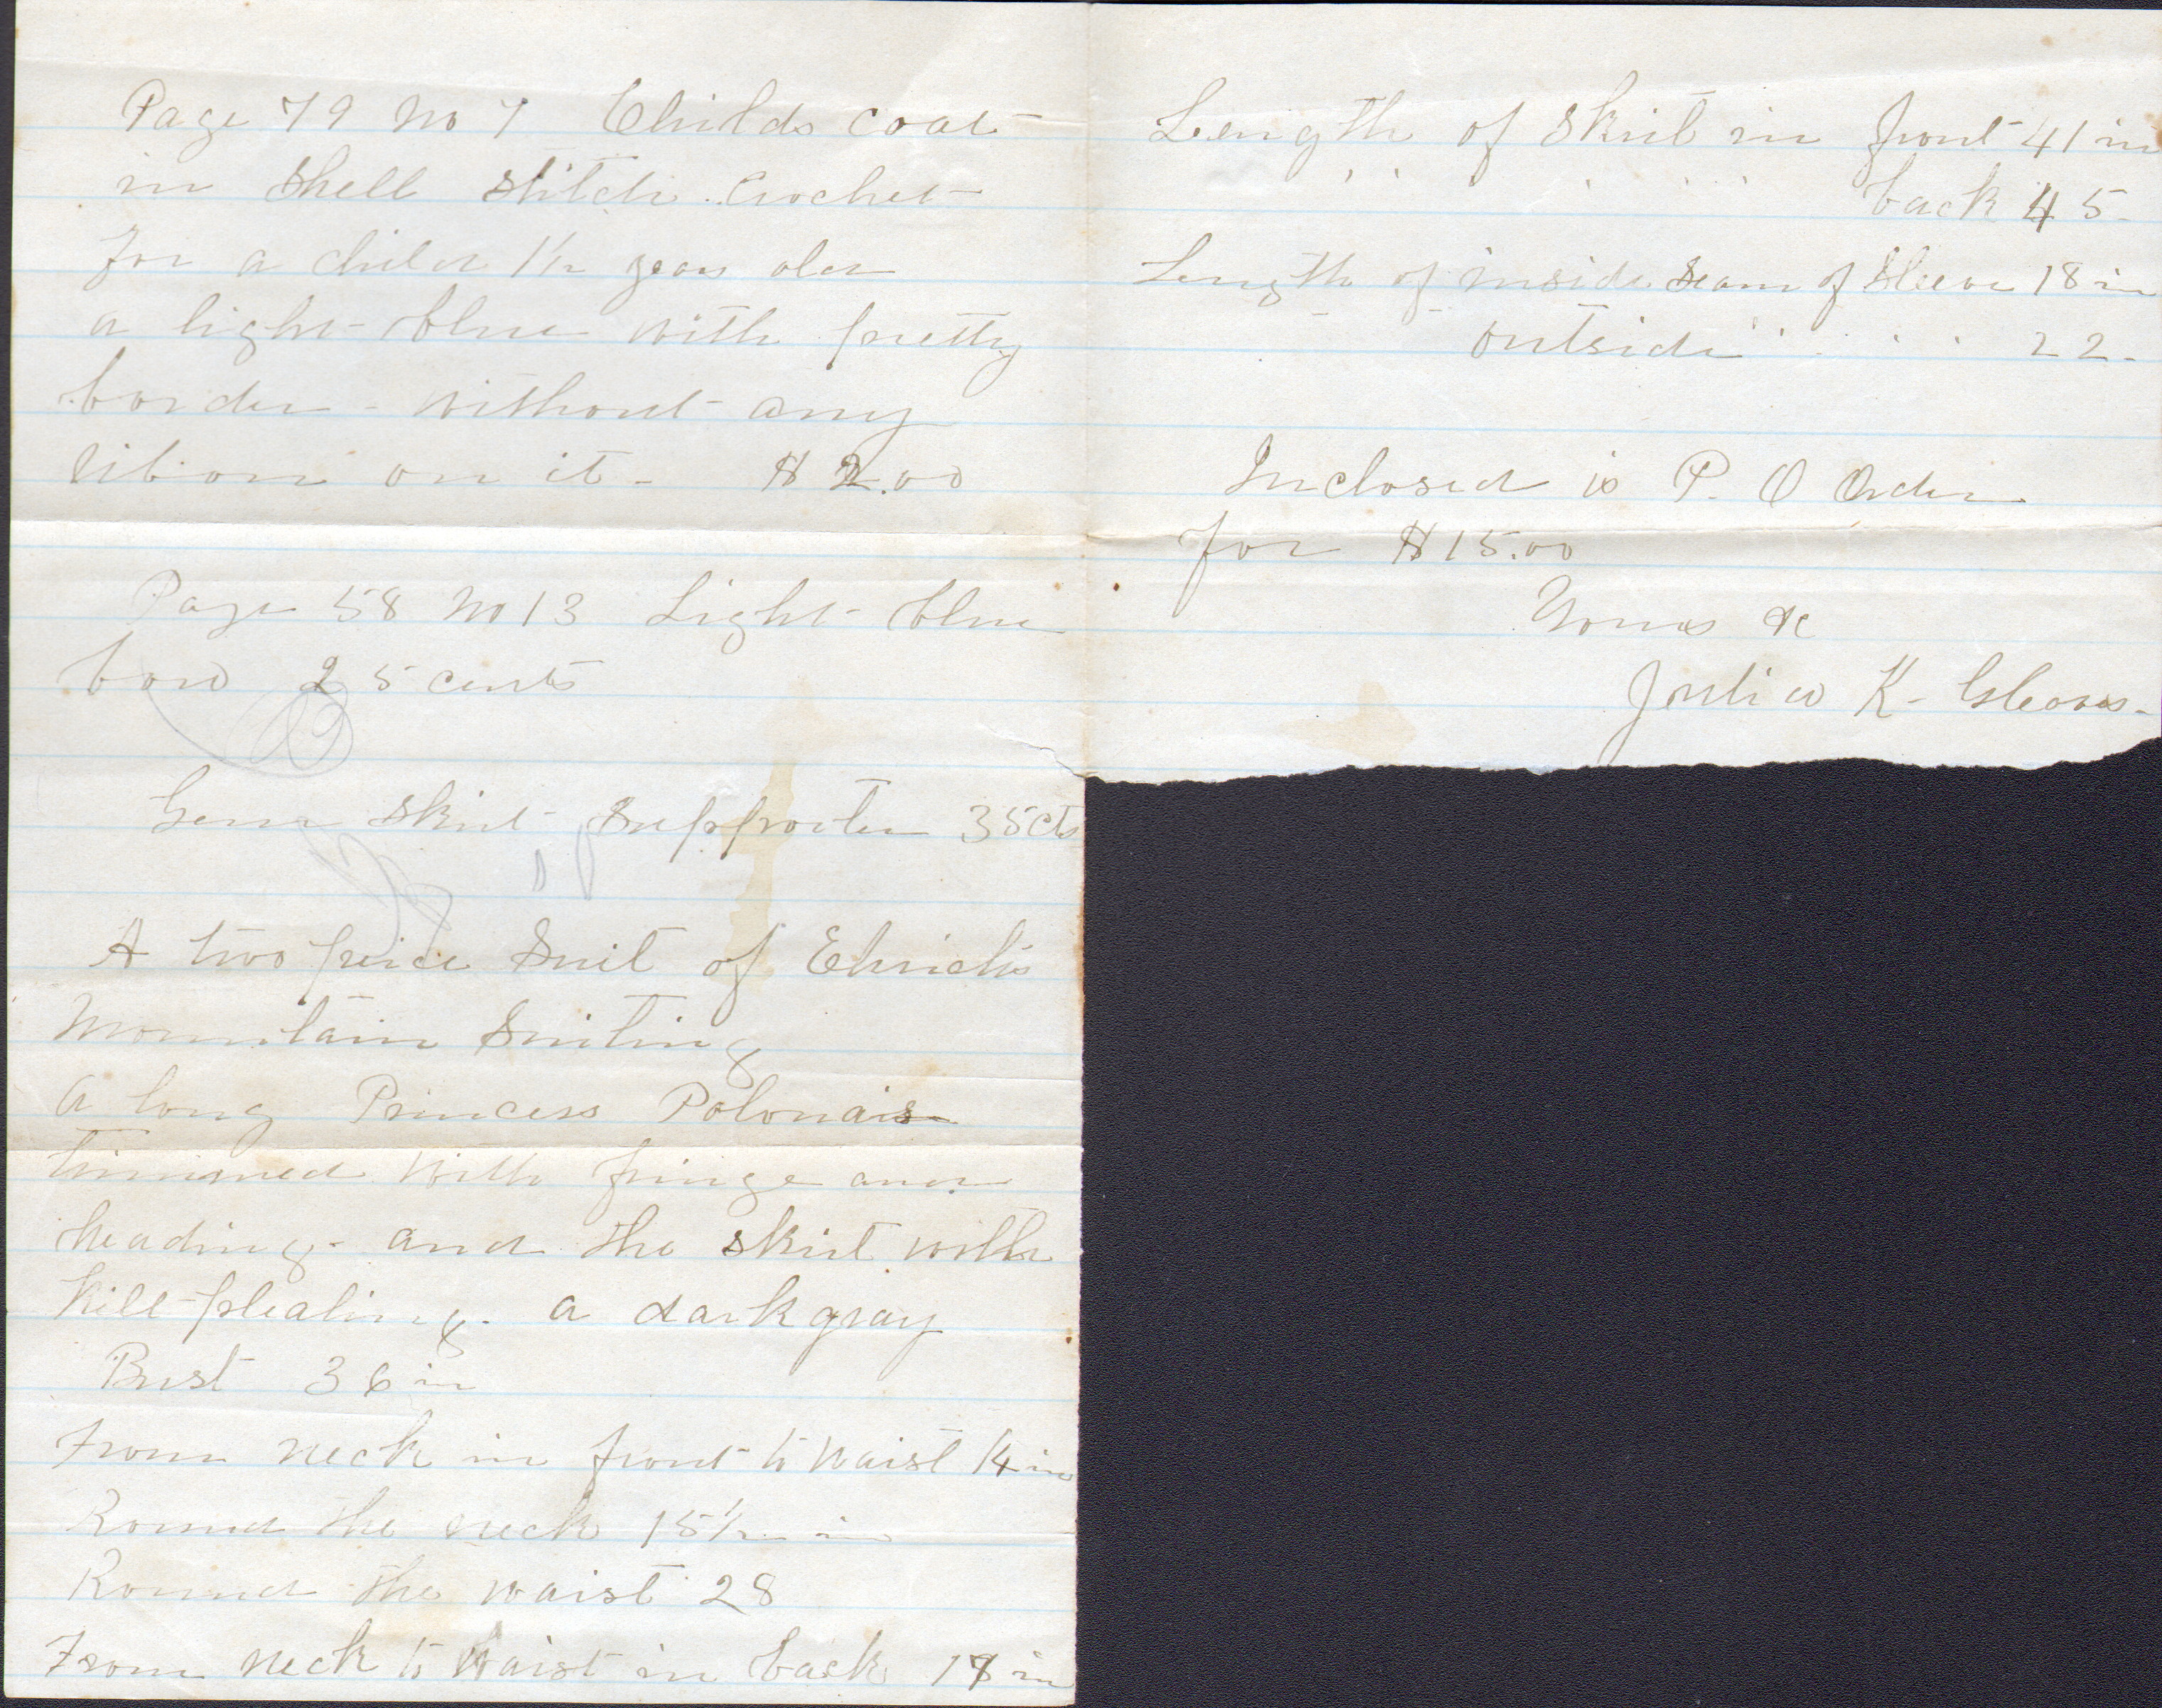 Page 79 No 7 Childs coat
in Shell Stitch Crochet
for a child 1 1/2 years old
a light blue with pretty
border - without any
ribon on it - $2.00
Page 58 No 13 Light blue
bow 25 cents
Gem Skirt Supporter 35 cts
A two peice Suit of Ehrich's
Mountain Suiting
a long Princess Polonaise
trimmed with fringe and
heading - and the skirt with
kilt-pleating - a dark gray
Bust 36 in
From neck in front to waist 14 in
Round the neck 15 1/2 in
Round the waist 28
From neck to waist in back in
Length of Skirt in front 41 in
" " " " back 45 -
Length of inside seam of Sleeve 18 in
" " outside " " " 22 -
Inclosed is P. O Order
for $15.00
Yours &c
Julia K -